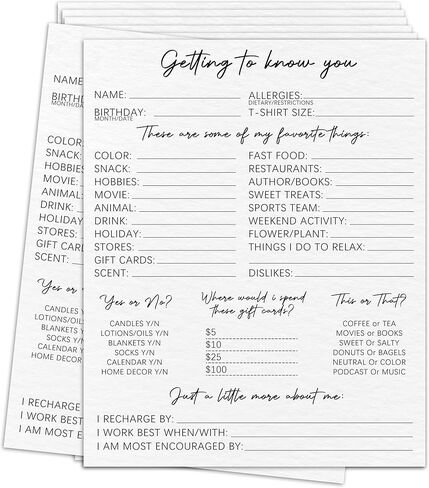 Getting to know you
NAME: ALLERGIES:
DIETARY/RESTRICTIONS
BIRTHDAY: T-SHIRT SIZE:
MONTH/DATE
These are some of my favorite things:
COLOR: FAST FOOD:
SNACK: RESTAURANTS:
HOBBIES: AUTHOR/BOOKS:
MOVIE: SWEET TREATS:
ANIMAL: SPORTS TEAM:
DRINK: WEEKEND ACTIVITY:
HOLIDAY: FLOWER/PLANT:
STORES: THINGS I DO TO RELAX:
GIFT CARDS:
SCENT: DISLIKES:
Yes or No?
CANDLES Y/N
LOTIONS/OILS Y/N
BLANKETS Y/N
SOCKS Y/N
CALENDAR Y/N
HOME DECOR Y/N
Where would i spend
these gift cards?
$5
$10
$25
$100
This or That?
COFFEE or TEA
MOVIES or BOOKS
SWEET Or SALTY
DONUTS Or BAGELS
NEUTRAL Or COLOR
PODCAST Or MUSIC
Just a little more about me:
I RECHARGE BY:
I WORK BEST WHEN/WITH:
I AM MOST ENCOURAGED BY:
NAME
BIRTH
MONTH/DA
COLOR
SNACK:
HOBBIES
MOVIE:
ANIMAL:
DRINK:
HOLIDAY
STORES:
GIFT CARD
SCENT:
Yes or
CANDLES Y
LOTIONS/OILS
BLANKETS Y
SOCKS Y/N
CALENDAR Y
HOME DECOR
I RECHARGE
I WORK BES
I AM MOST E